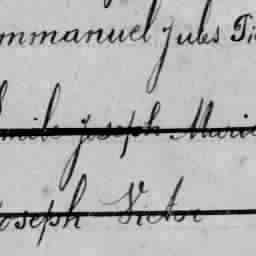 mmanuel Jules Vi
mile Joseph Marie
oseph Victor